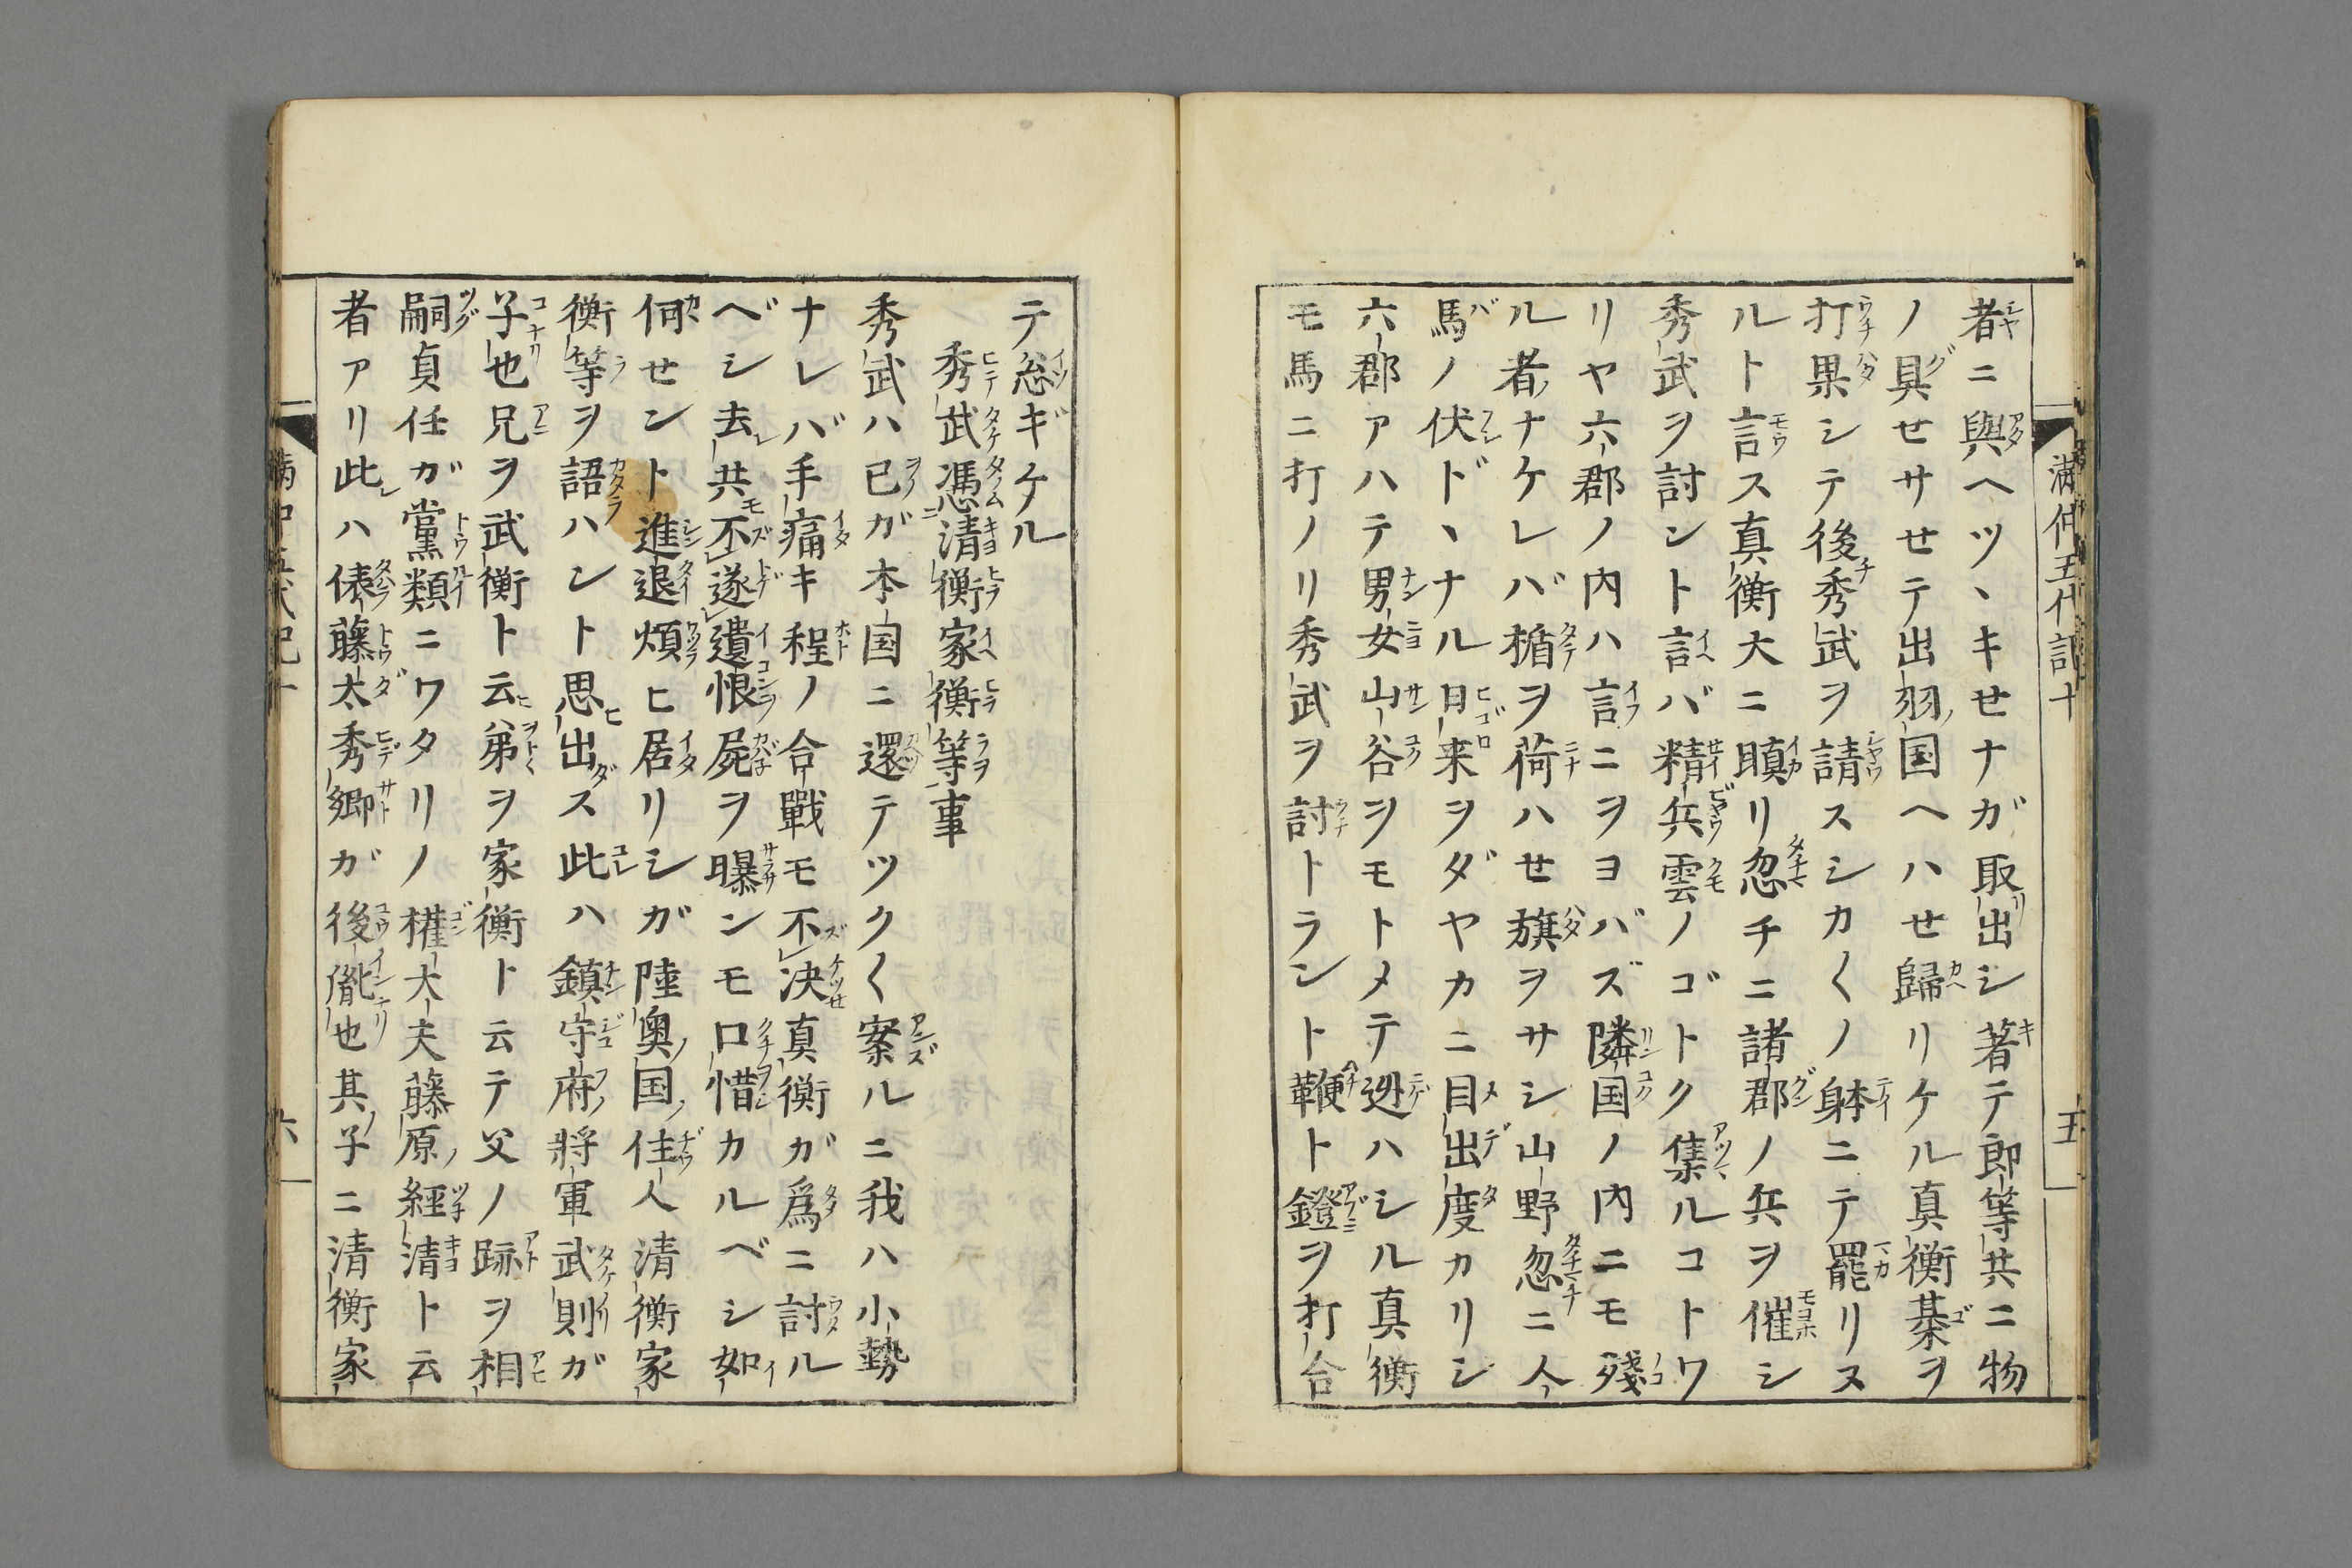 満仲五代記十
五
者ニ與ヘツヽキせナガ取出シ著テ郎等共ニ物
ノ具せサせテ出羽国ヘハせ歸リケル真衡棊ヲ
打果シテ後秀武ヲ請スシカ〱ノ躰ニテ罷リヌ
ルト言ス真衡大ニ瞋リ忽チニ諸郡ノ兵ヲ催シ
秀武ヲ討ント言バ精兵雲ノゴトク集ルコトワ
リヤ六郡ノ内ハ言ニヲヨバズ隣国ノ内ニモ殘
ル者ナケレバ楯ヲ荷ハせ旗ヲサシ山野忽ニ人
馬ノ伏ドヽナル日来ヲダヤカニ目出度カリシ
六郡アハテ男女山谷ヲモトメテ迯ハシル真衡
モ馬ニ打ノリ秀武ヲ討トラント鞭ト鐙ヲ打合
テ忩ギケル
秀武憑清衡家衡等事
秀武ハ已ガ本国ニ還テツク〱案ルニ我ハ小勢
ナレバ手痛キ程ノ合戰モ不决真衡ガ爲ニ討ル
ベシ去共不遂遺恨屍ヲ曝ンモ口惜カルベシ如
何せント進退煩ヒ居リシガ陸奥国住人清衡家
衡等ヲ語ハント思出ス此ハ鎮守府將軍武則ガ
子也兄ヲ武衡ト云弟ヲ家衡ト云テ父ノ跡ヲ相
嗣貞任ガ黨類ニワタリノ權大夫藤原経清ト云
者アリ此ハ俵藤太秀郷ガ後胤也其子ニ清衡家
六